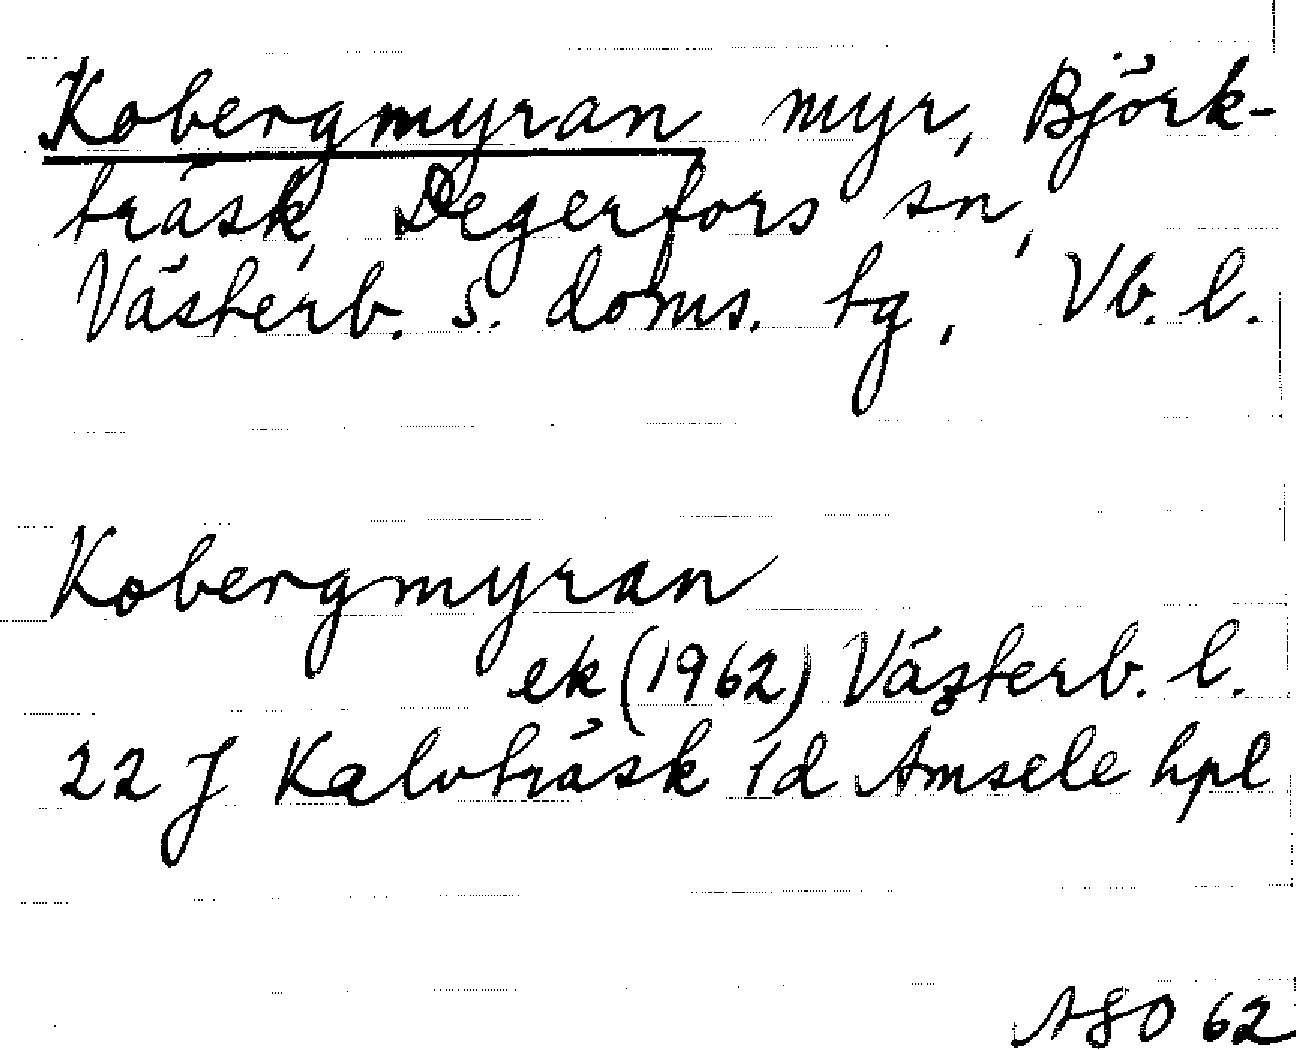 Kobergmyran myr, Björk-
träsk, Degerfors sn,
Västerb. s. doms. tg, Vb. l.
Kobergmyran
ek (1962) Västerb. l.
22 J Kalvträsk 1d Amsele hpl
ASO 62